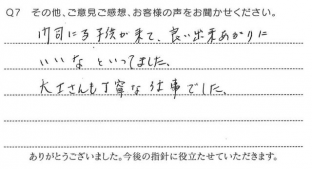 Q7 その他、ご意見ご感想、お客様の声をお聞かせください。
門司に子孫が来て、良い出来あがりに
いいなといってました。
大工さんも丁寧な仕事でした。
ありがとうございました。今後の指針に役立たせていただきます。